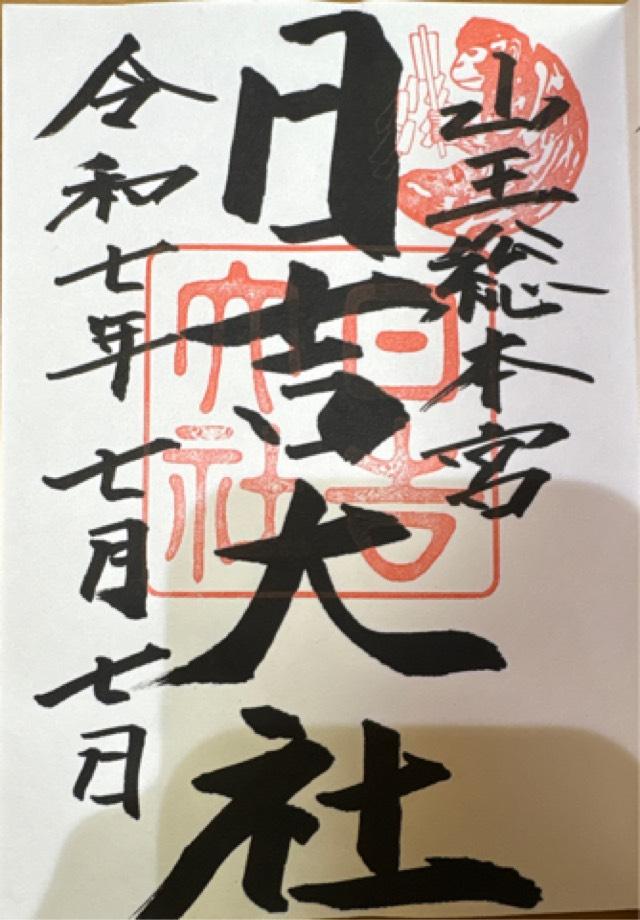 山王総本宮
日吉大社
日吉大社
令和七年七月七日